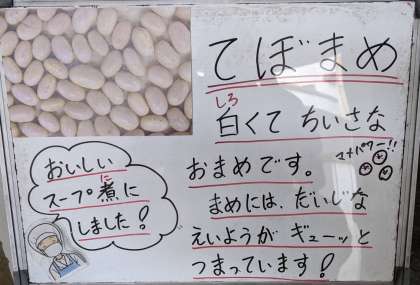 てぼまめ
しろ
白くて ちいさな
おまめです。
マメパワー!!
まめには、だいじな
えいようが ギューッと
つまっています!
おいしい
に
スープ煮に
しました!